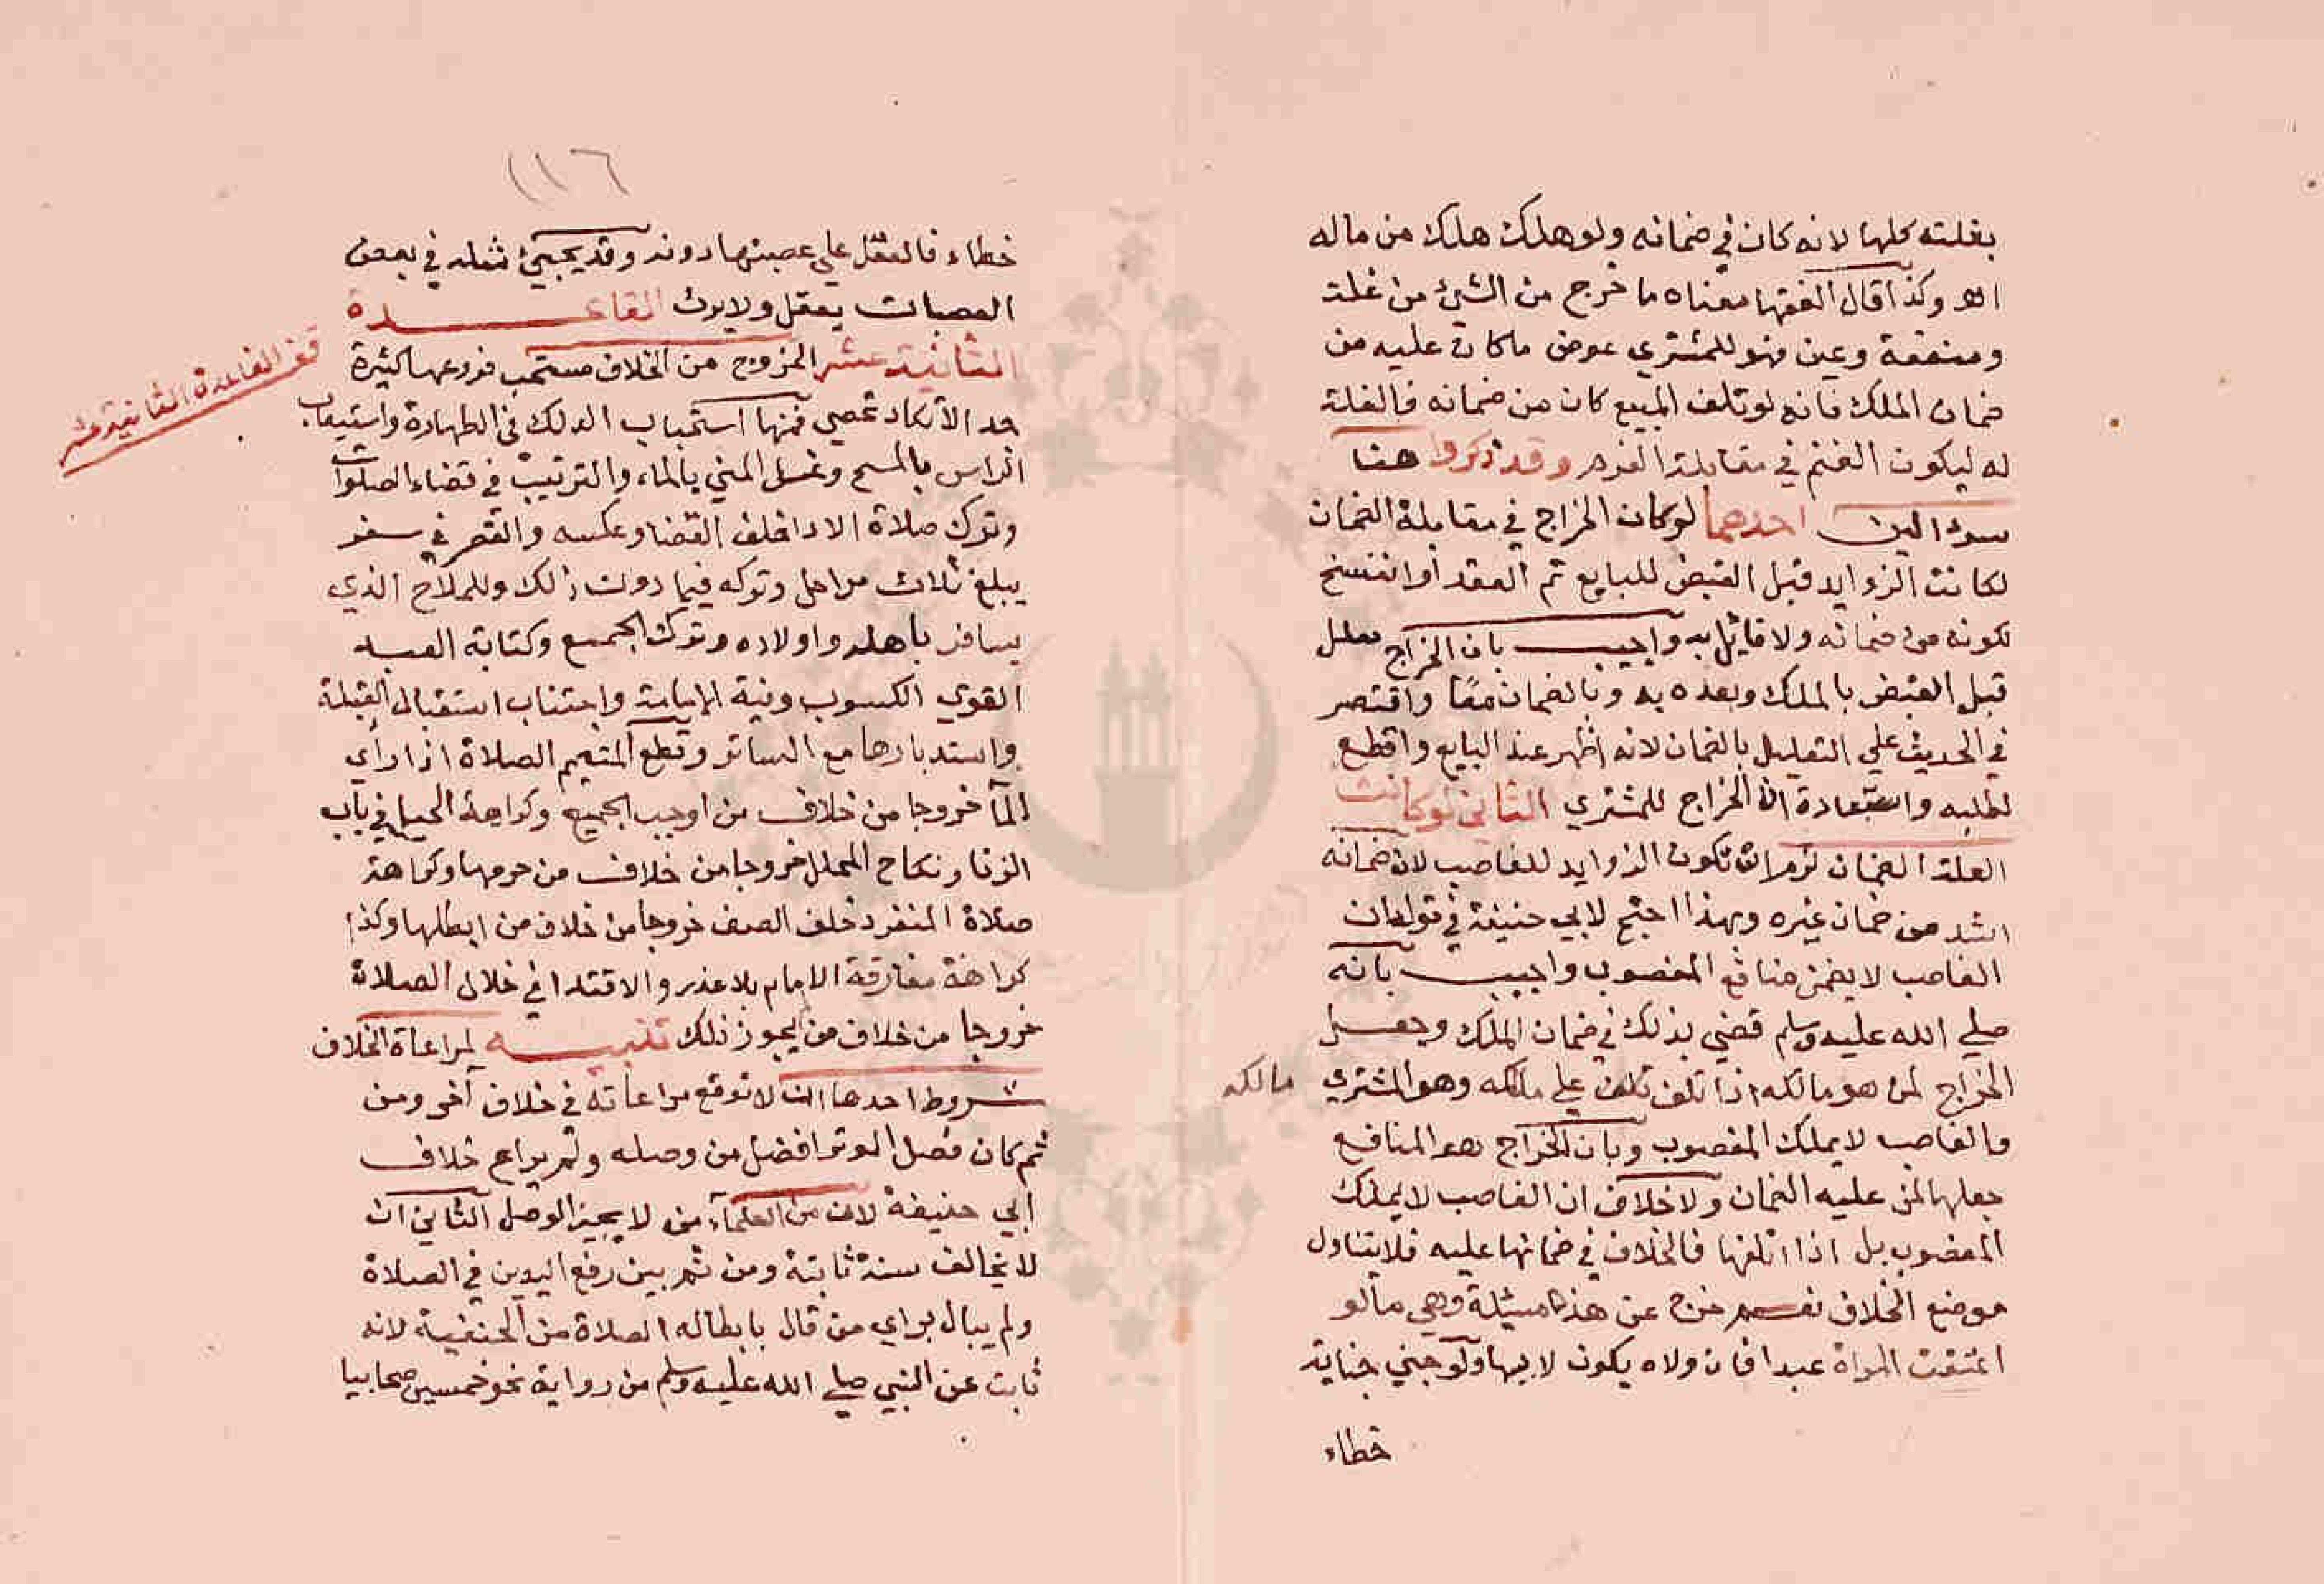 بغلته كلها لانه كان في ضمانه ولو هلك هلك من ماله
اهـ وكذا قال الفقها معناه ما خرج من الشئ من غلة
ومنفعة وعين فهو للمشتري عوض ما كان عليه من
ضمان الملك فانه لو تلف المبيع كان من ضمانه فالغلة
له ليكون الغنم في مقابلة الغرم وقد ذكروا هنا
سؤالين احدهما لو كان الخراج في مقابلة الضمان
لكانت الزوايد قبل القبض للبايع تم العقد أو انفسخ
لكونه من ضمانه ولا قائل به واجيب بان الخراج معلل
قبل القبض بالملك وبعده به وبالضمان معًا واقتصر
في الحديث علي التعليل بالضمان لانه اظهر عند البايع واقطع
لطلبه واستبعاده ان الخراج للمشتري الثاني لو كانت
العلة الضمان لزم ان تكون الزوايد للغاصب لان ضمانه
اشد من ضمان غيره وبهذا احتج لابي حنيفة في قوله ان
الغاصب لا يضمن منافع المغصوب واجيب بانه
صلي الله عليه وسلم قضي بذلك في ضمان الملك وجعل
الخراج لمن هو مالكه اذا تلف تلف علي ملكه وهو المشتري
مالكه
والغاصب لا يملك المغصوب وبان الخراج هو المنافع
جعلها لمن عليه الضمان ولا خلاف ان الغاصب لا يملك
المغصوب بل اذا اتلفها فالخلاف في ضمانها عليه فلا يتناول
موضع الخلاف نعم خرج عن هذا مسئلة وهي ما لو
اعتقت المراة عبدا فان ولاه يكون لابنها ولو جني جناية
خطاء
١١٦
خطاء فالعقل علي عصبتها دونه وقد يجيئ مثله في بعض
العصبات يعقل ولا يرث القاعدة
الثانية عشر الخروج من الخلاف مستحب فروعها كثيرة
قف القاعدة الثانية عشر
جدا لا تكاد تحصي فمنها استحباب الدلك في الطهارة واستيعاب
الراس بالمسح وغسل المني بالماء والترتيب في قضاء الصلوات
وترك صلاة الادا خلف القضا وعكسه والقصر في سفر
يبلغ ثلاث مراحل وتركه فيما دون ذلك وللملاح الذي
يسافر باهله واولاده وترك الجمع وكتابة العبد
القوي الكسوب ونية الإمامة واجتناب استقبال القبلة
واستدبارها مع الساتر وقطع المتيمم الصلاة اذا راي
المآ خروجا من خلاف من اوجب الجميع وكراهة الحيل في باب
الربا ونكاح المحلل خروجا من خلاف من حرمها وكراهة
صلاة المنفرد خلف الصف خروجا من خلاف من ابطلها وكذا
كراهة مفارقة الامام بلا عذر والاقتدا في خلال الصلاة
خروجا من خلاف من لم يجوز ذلك تنبيه لمراعاة الخلاف
شروط احدها ان لا توقع مراعاته في خلاف آخر ومن
ثم كان فصل الوتر افضل من وصله ولم يراع خلاف
أبي حنيفة لان من العلمآء من لا يجيز الوصل الثاني ان
لا يخالف سنة ثابتة ومن ثم يسن رفع اليدين في الصلاة
ولم يبال براي من قال بابطاله الصلاة من الحنفية لانه
ثابت عن النبي صلي الله عليه وسلم من رواية نحو خمسين صحابيا